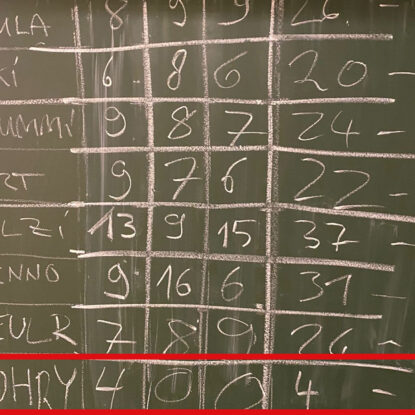 ULA 8 9 9 26 -
6 8 6 20 -
UMMI 9 8 7 24 -
RT 9 7 6 22 -
LZI 13 9 15 37 -
NNO 9 16 6 31 -
EULR 7 8 9 26 -
OHRY 4 0 0 4 -